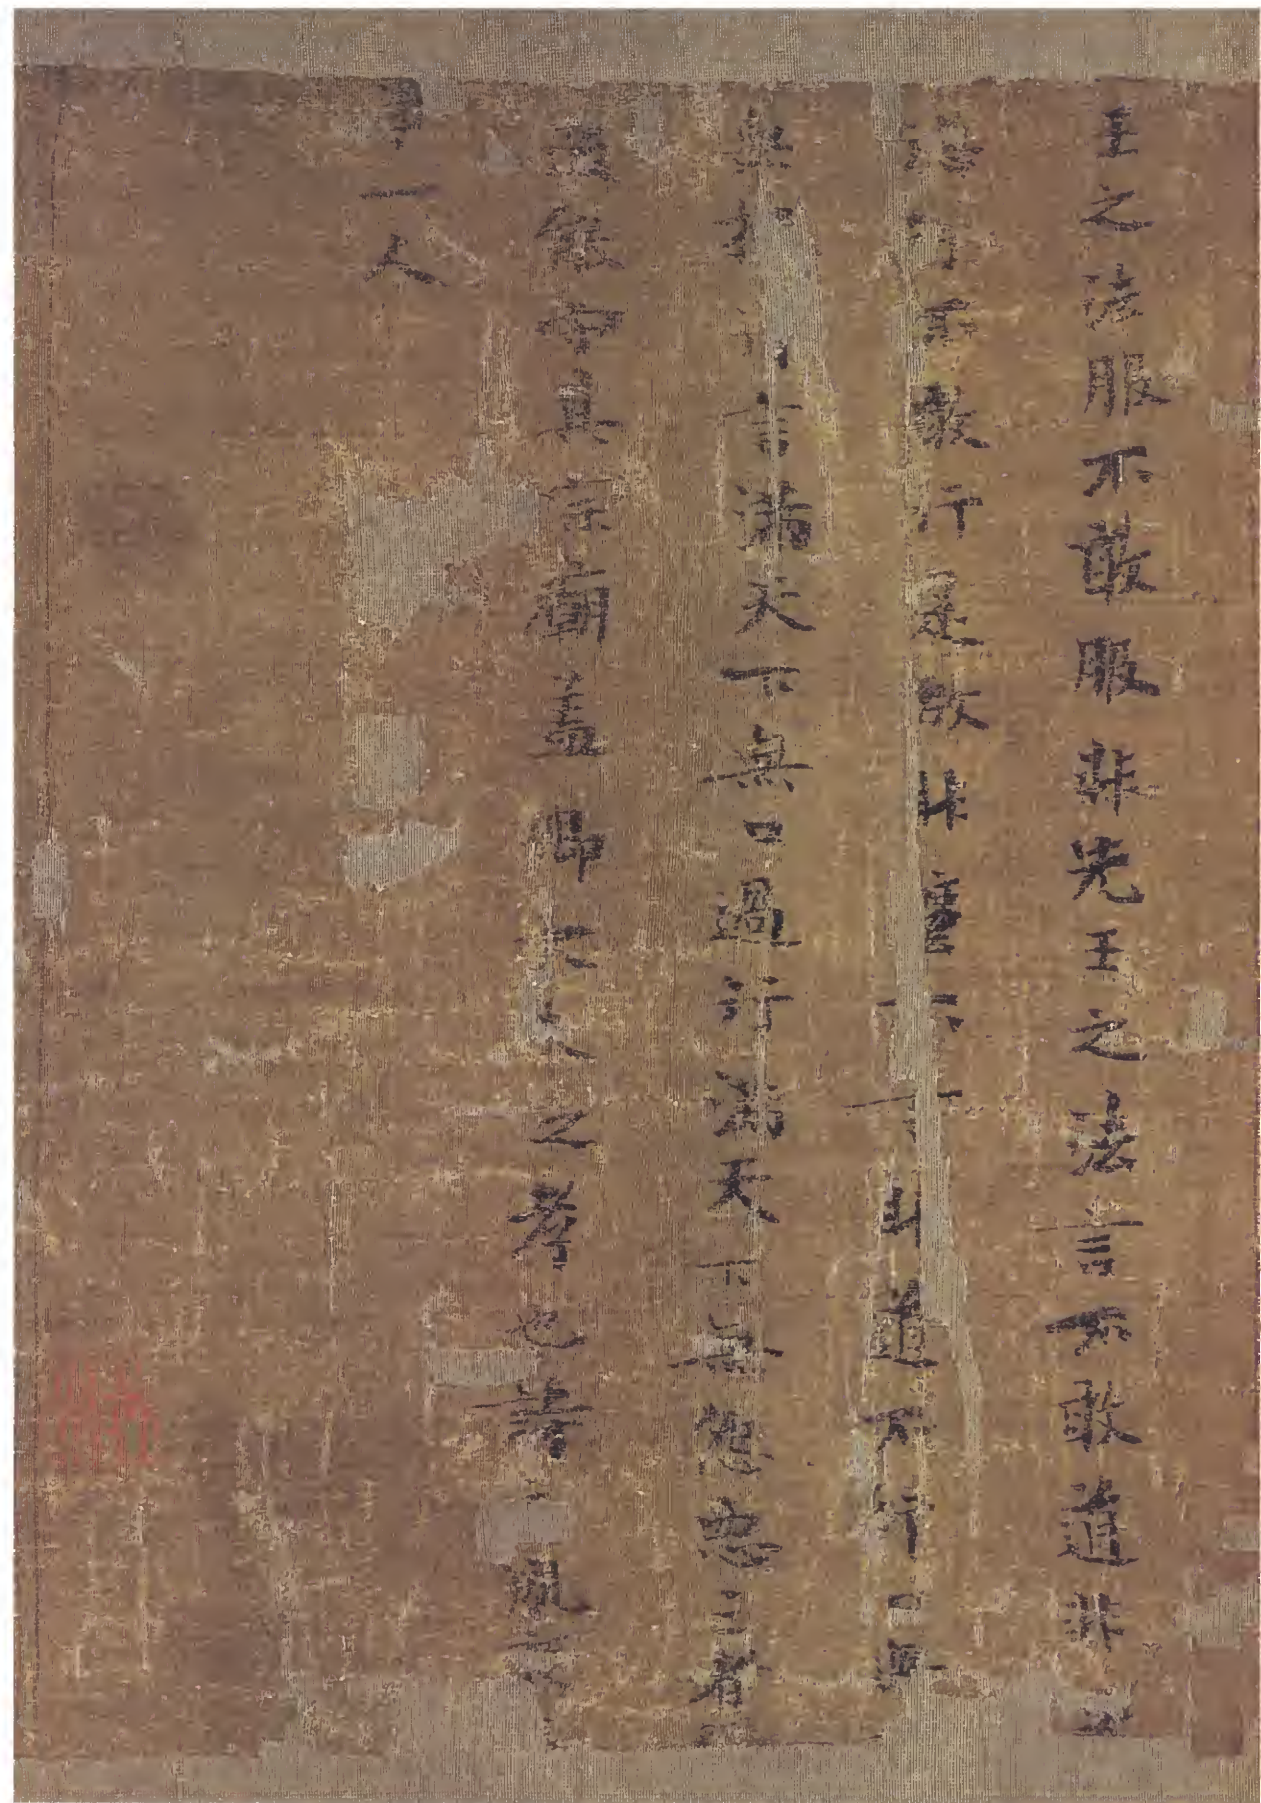 王之法服不敢服非先王之法言不敢道非
敢行是故非道不行口無
言滿天下無口過行滿天下無怨惡三者
能守其宗廟蓋卿大夫之孝也詩夙夜
一人